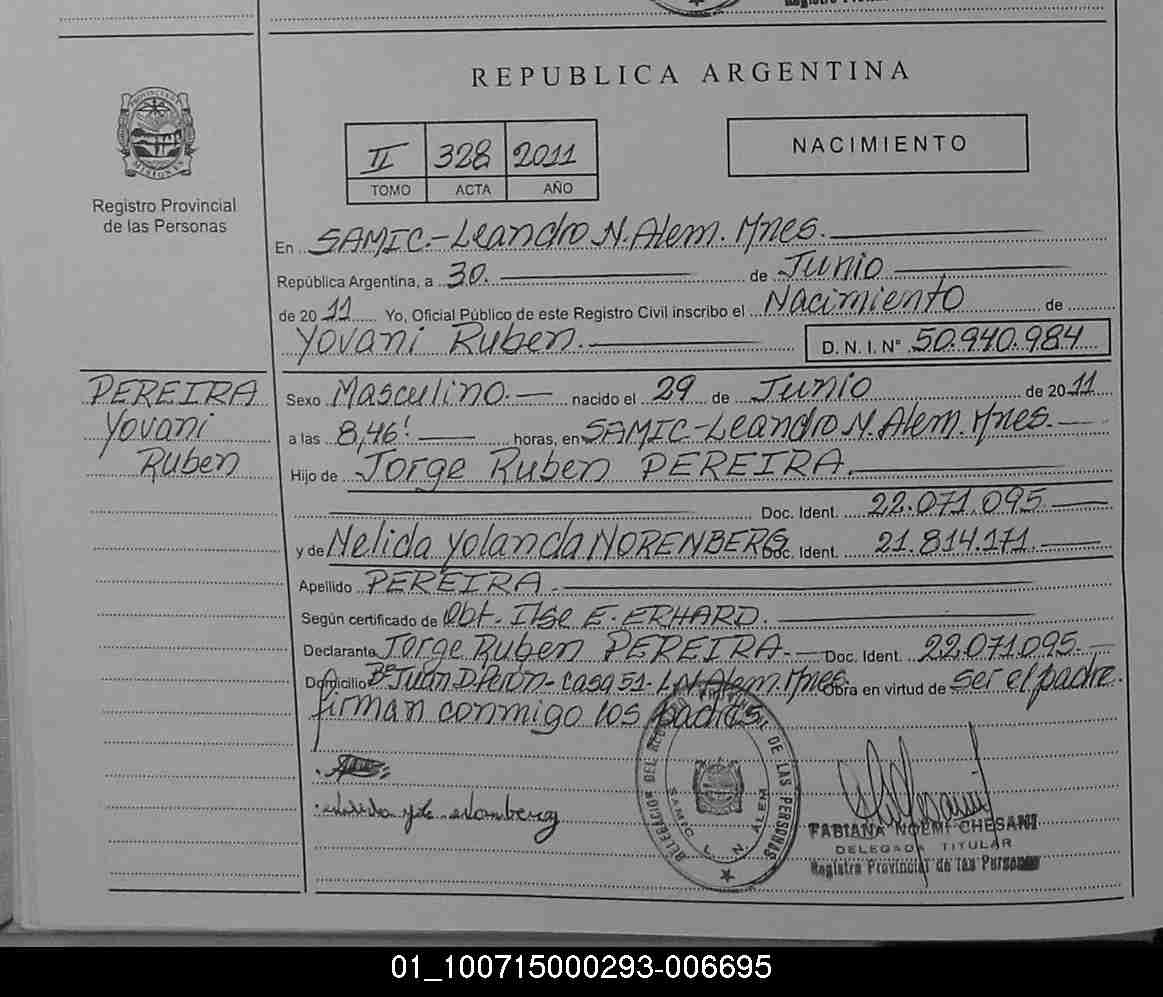 REPUBLICA ARGENTINA
II 328 2011
TOMO ACTA AÑO
NACIMIENTO
PROVINCIA DE
MISIONES
Registro Provincial
de las Personas
En SAMIC.-Leandro N. Alem. Mnes.
República Argentina, a 30. de Junio
de 2011 Yo, Oficial Público de este Registro Civil inscribo el Nacimiento de
Yovani Ruben. D. N. I. N° 50.940.984
PEREIRA
Yovani
Ruben
Sexo Masculino. nacido el 29 de Junio de 2011
a las 8,46' horas, en SAMIC-Leandro N. Alem. Mnes.
Hijo de Jorge Ruben PEREIRA.
Doc. Ident. 22.071.095
y de Nelida Yolanda NORENBERG Doc. Ident. 21.814.171.
Apellido PEREIRA.
Según certificado de Obt. Ilse E. ERHARD.
Declarante Jorge Ruben PEREIRA- Doc. Ident. 22.071.095.
Domicilio B° Juan D. Peron- casa 51- L.N. Alem. Mnes. Obra en virtud de ser el padre.
firman conmigo los padres
DELEGACION DEL REGISTRO PROVINCIAL DE LAS PERSONAS
SAMIC L. N. ALEM
FABIANA NOEMI CHESANI
DELEGADA TITULAR
Registro Provincial de las Personas
01_100715000293-006695